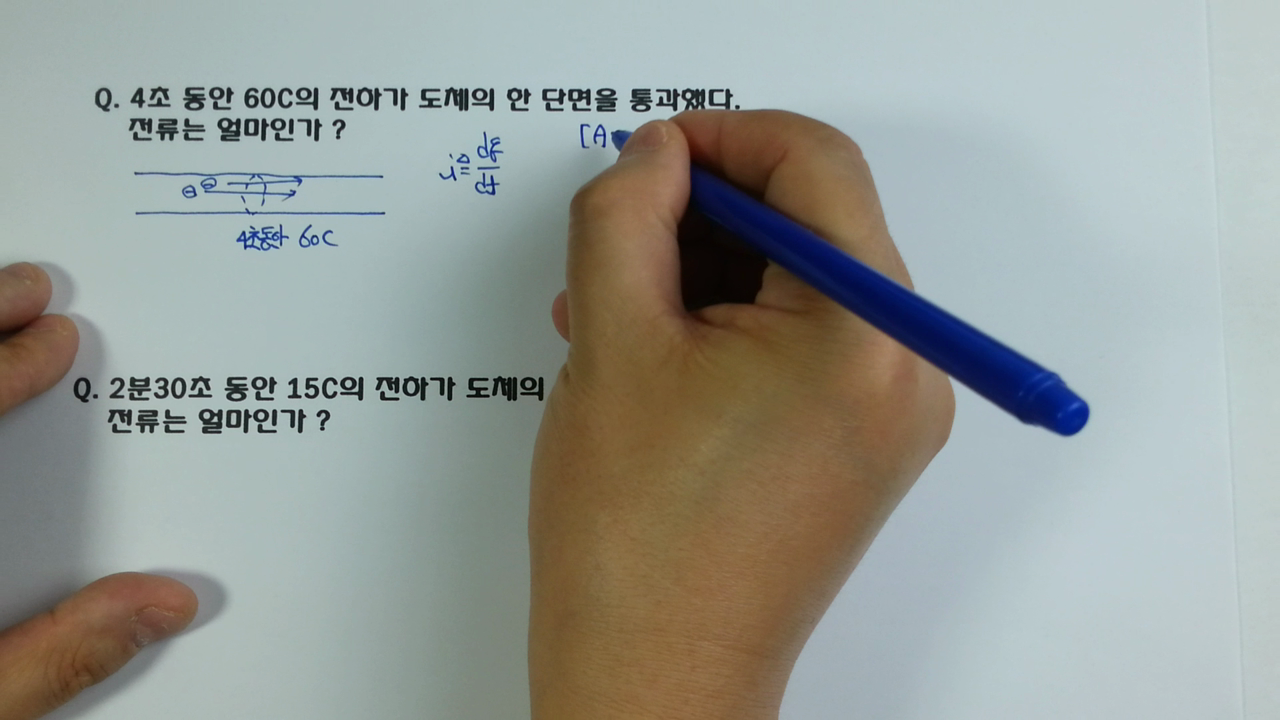 Q. 4초 동안 60C의 전하가 도체의 한 단면을 통과했다.
전류는 얼마인가 ?
i ≜ dq/dt
[A
⊖ ⊖
4초동안 60C
Q. 2분30초 동안 15C의 전하가 도체의
전류는 얼마인가 ?